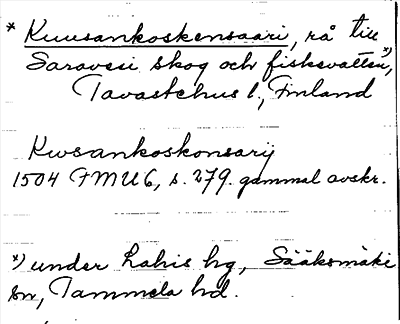 * Kuusankoskensaari, rå till
Saravesi skog och fiskevatten *),
Tavastehus l., Finland
Kwsankoskonsarij
1504 FMU 6, s. 279. gammal avskr.
*) under Lahis hg, Sääksmäki
sn, Tammela hd.